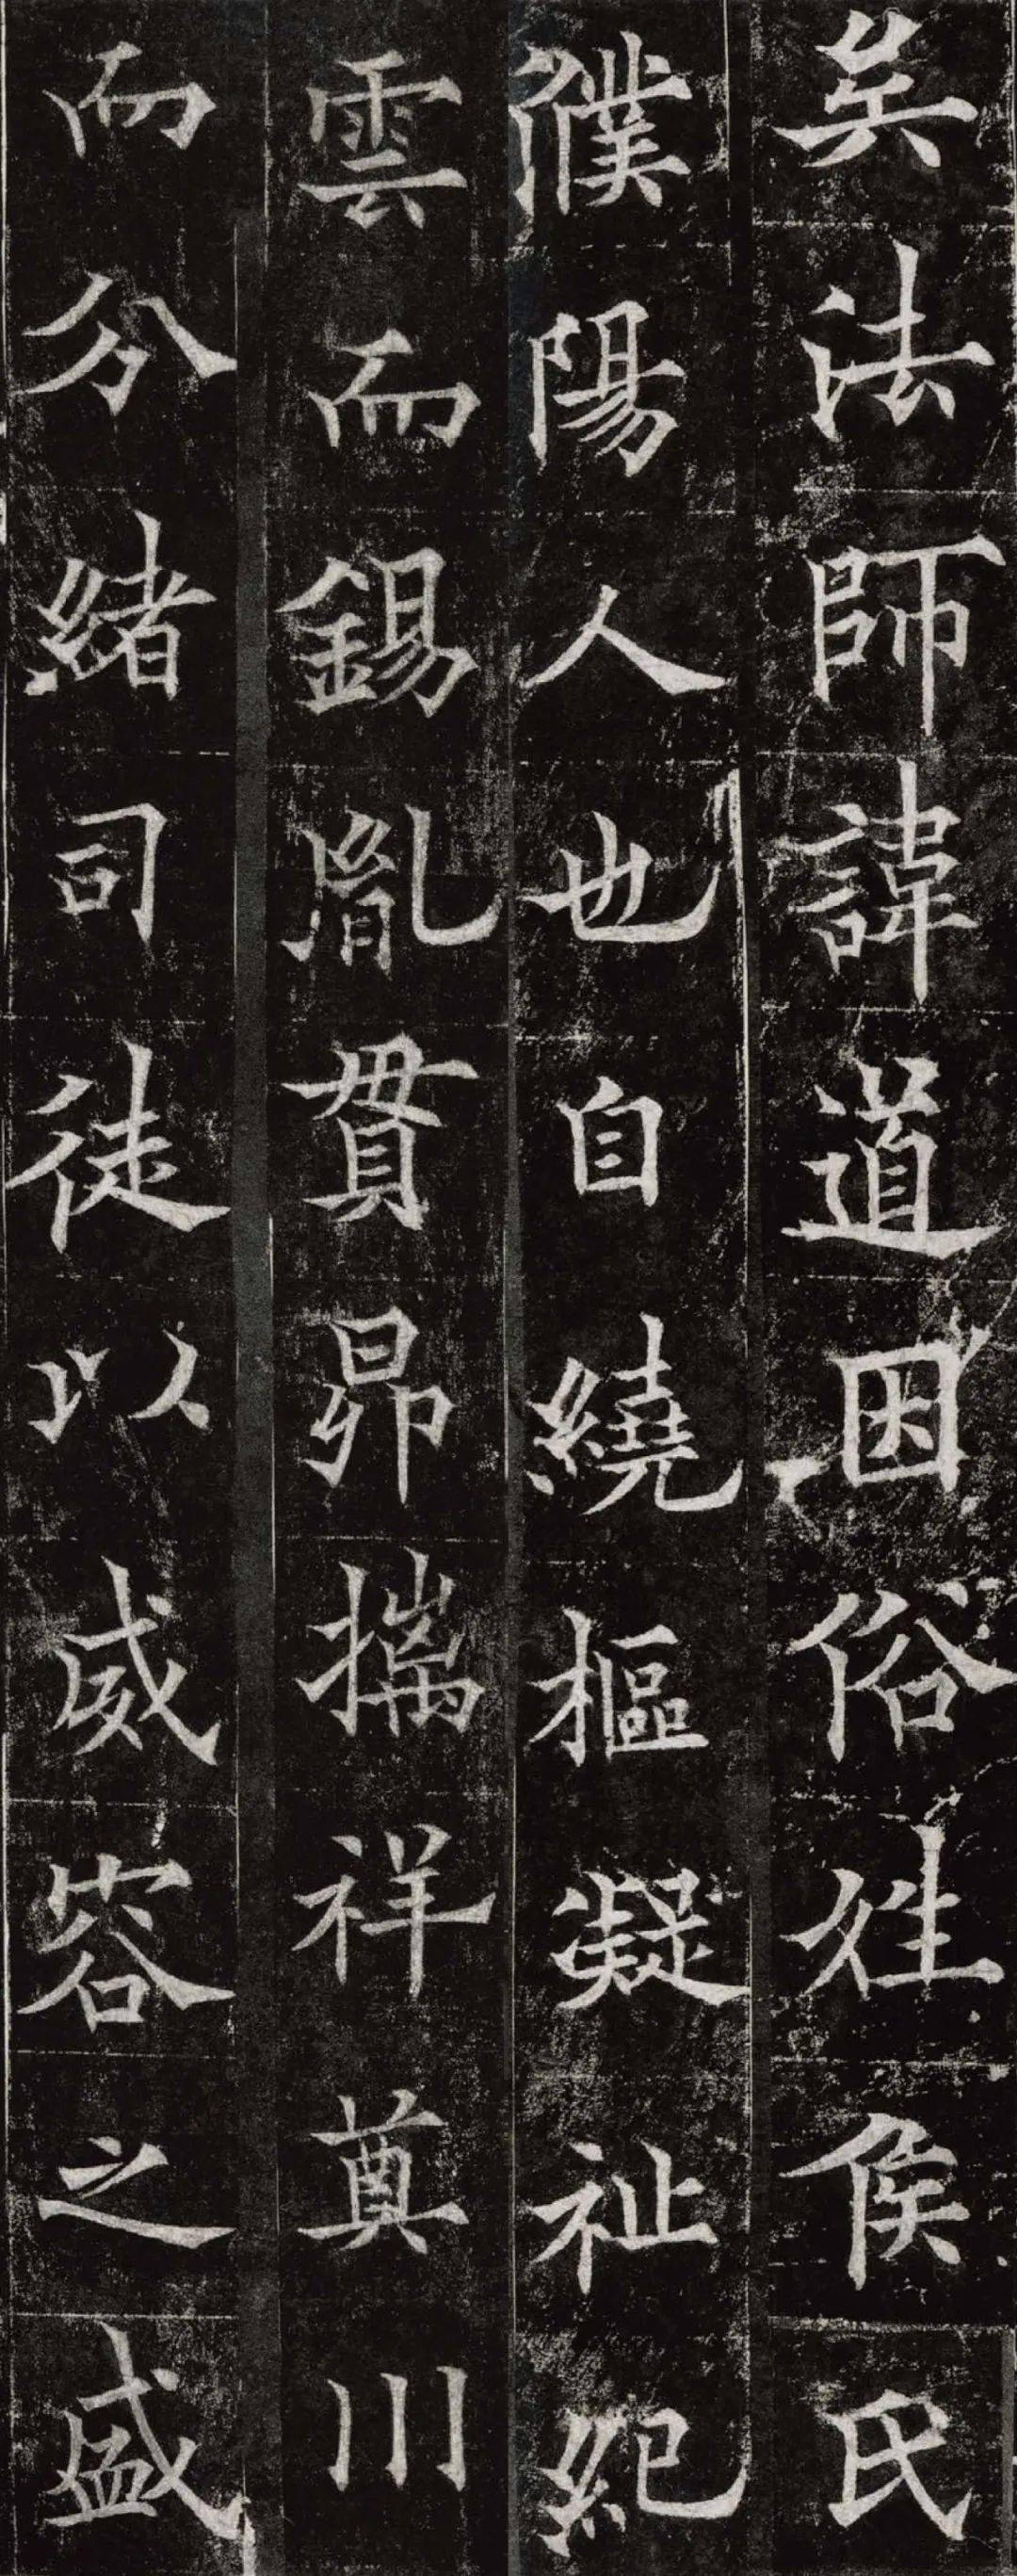 矣法師諱道因俗姓侯氏
濮陽人也自繞樞凝祉紀
雲而錫胤貫昴摛祥奠川
而分緒司徒以威容之盛